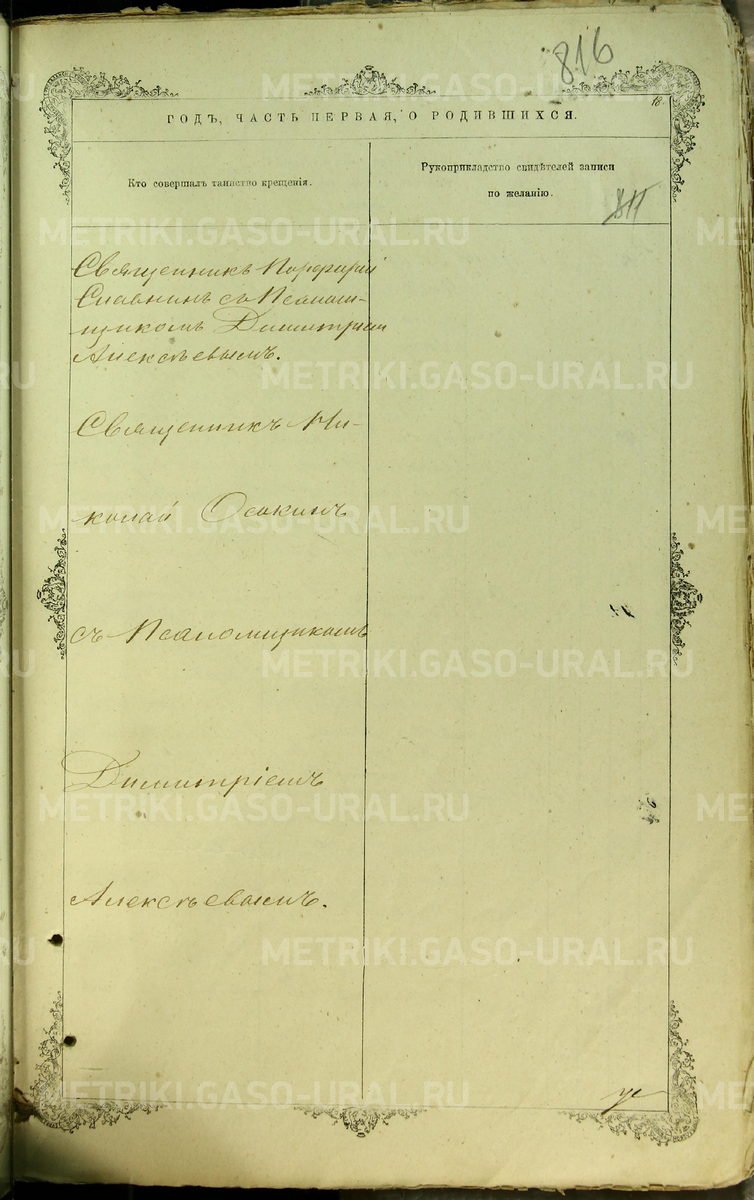 816
18
ГОДЪ, ЧАСТЬ ПЕРВАЯ, О РОДИВШИХСЯ.
Кто совершалъ таинство крещенія.
Рукоприкладство свидѣтелей записи
по желанію.
Священникъ Порфирій
Славнинъ съ Псалом-
щикомъ Димитріем
Алексѣевымъ.
Священникъ Ни-
колай Осокинъ
съ Псаломщикомъ
Димитріемъ
Алексѣевымъ.
METRIKI.GASO-URAL.RU